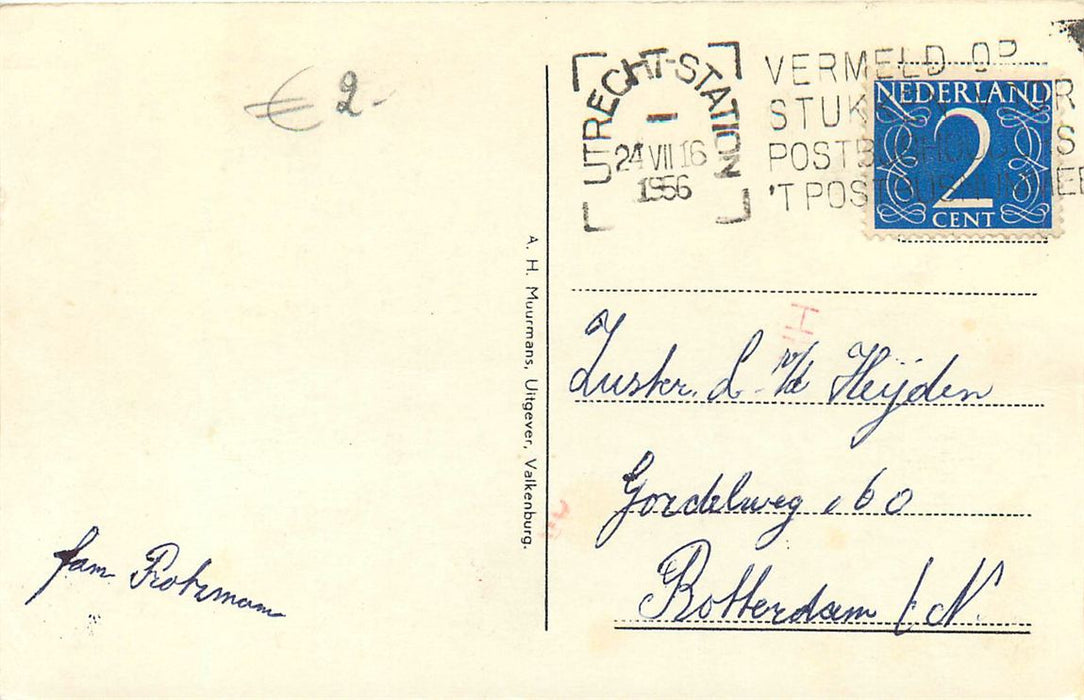 € 2-
UTRECHT-STATION
24 VII 16
1956
VERMELD OP
STUKKEN VOOR
POSTBUSHOUDERS
'T POSTBUSNUMMER
NEDERLAND
2
CENT
A. H. Muurmans, Uitgever, Valkenburg.
H
Zuster. L v/d Heijden
Gordelweg 160
Rotterdam /N.
fam Rotsmann